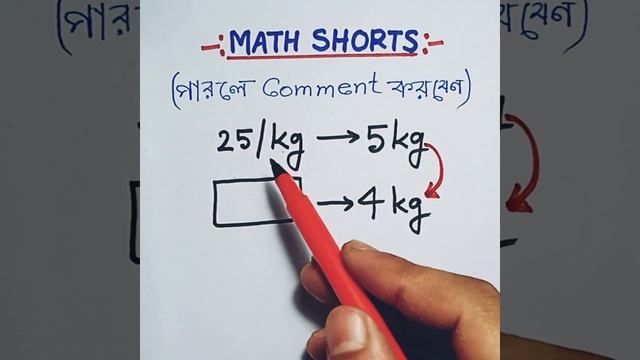 -: MATH SHORTS :-
(পারলে Comment করবেন)
25/kg → 5kg
→ 4 kg